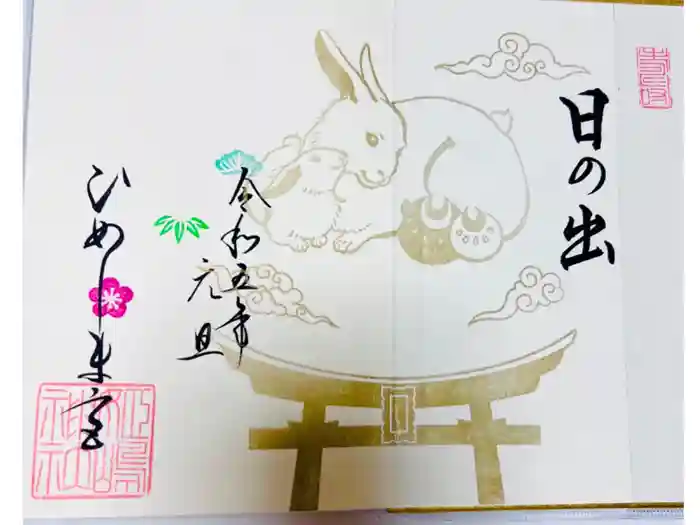 日の出
令和五年
元旦
ひめしま宮
姫嶋神社